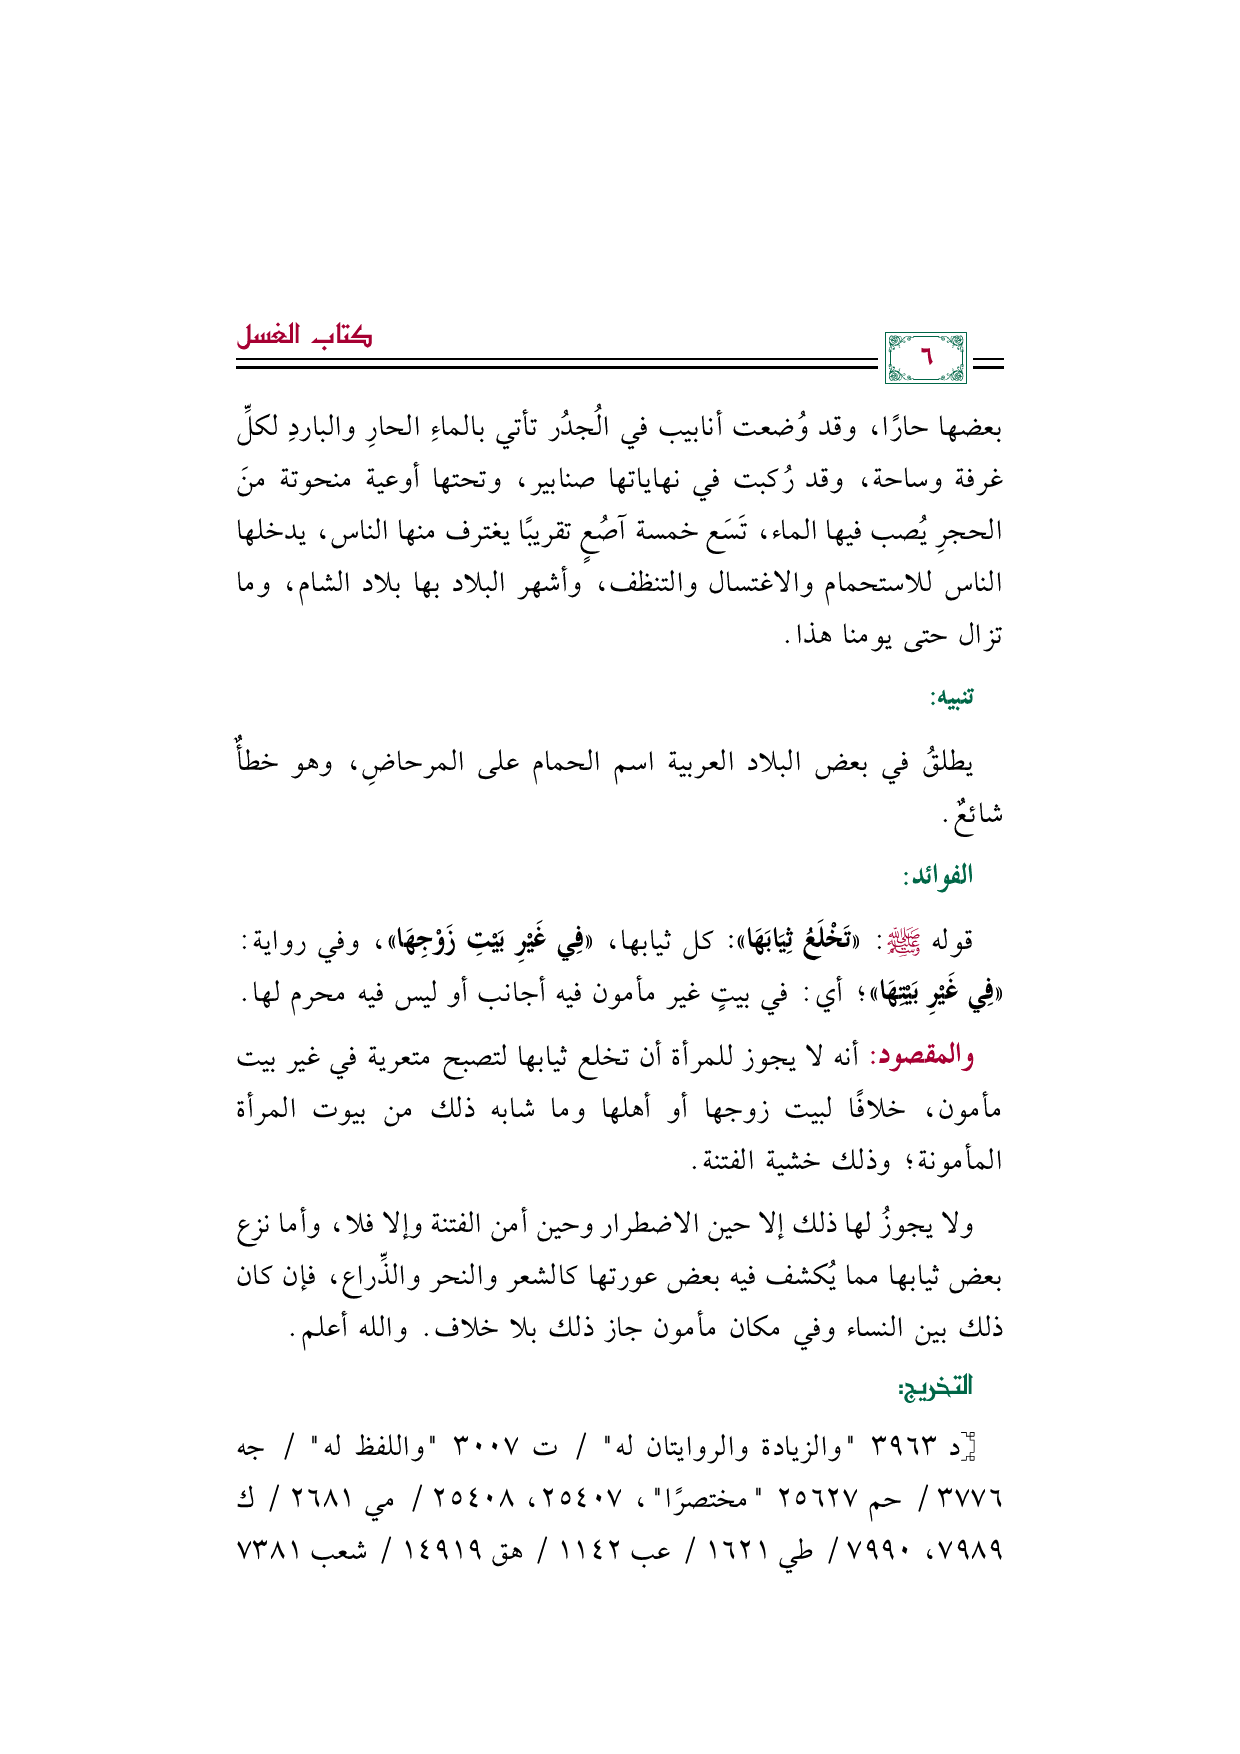 كتاب الغسل
٦
بعضها حارًا، وقد وُضعت أنابيب في الُجدُر تأتي بالماءِ الحارِ والباردِ لكلِّ
غرفة وساحة، وقد رُكبت في نهاياتها صنابير، وتحتها أوعية منحوتة منَ
الحجرِ يُصب فيها الماء، تَسَع خمسة آصُعٍ تقريبًا يغترف منها الناس، يدخلها
الناس للاستحمام والاغتسال والتنظف، وأشهر البلاد بها بلاد الشام، وما
تزال حتى يومنا هذا.
تنبيه:
يطلقُ في بعض البلاد العربية اسم الحمام على المرحاضِ، وهو خطأٌ
شائعٌ.
الفوائد:
قوله ﷺ: «تَخْلَعُ ثِيَابَهَا»: كل ثيابها، «فِي غَيْرِ بَيْتِ زَوْجِهَا»، وفي رواية:
«فِي غَيْرِ بَيْتِهَا»؛ أي: في بيتٍ غير مأمون فيه أجانب أو ليس فيه محرم لها.
والمقصود: أنه لا يجوز للمرأة أن تخلع ثيابها لتصبح متعرية في غير بيت
مأمون، خلافًا لبيت زوجها أو أهلها وما شابه ذلك من بيوت المرأة
المأمونة؛ وذلك خشية الفتنة.
ولا يجوزُ لها ذلك إلا حين الاضطرار وحين أمن الفتنة وإلا فلا، وأما نزع
بعض ثيابها مما يُكشف فيه بعض عورتها كالشعر والنحر والذِّراع، فإن كان
ذلك بين النساء وفي مكان مأمون جاز ذلك بلا خلاف. والله أعلم.
التخريج:
[د ٣٩٦٣ "والزيادة والروايتان له" / ت ٣٠٠٧ "واللفظ له" / جه
٣٧٧٦ / حم ٢٥٦٢٧ "مختصرًا"، ٢٥٤٠٧، ٢٥٤٠٨ / مي ٢٦٨١ / ك
٧٩٨٩، ٧٩٩٠ / طي ١٦٢١ / عب ١١٤٢ / هق ١٤٩١٩ / شعب ٧٣٨١